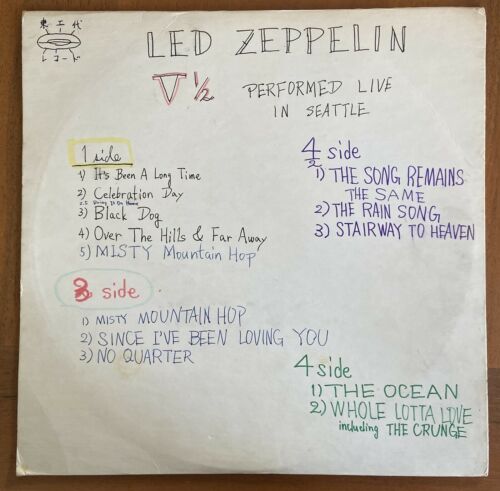 東 工 代
レコード
LED ZEPPELIN
V 1/2
PERFORMED LIVE
IN SEATTLE
1 side
1) It's Been A Long Time
2) Celebration Day
2.5 Bring It On Home
3) Black Dog
4) Over The Hills & Far Away
5) MISTY Mountain Hop
side
1) MISTY MOUNTAIN HOP
2) SINCE I'VE BEEN LOVING YOU
3) NO QUARTER
4 side
2
1) THE SONG REMAINS
THE SAME
2) THE RAIN SONG
3) STAIRWAY TO HEAVEN
4 side
1) THE OCEAN
2) WHOLE LOTTA LOVE
including THE CRUNGE